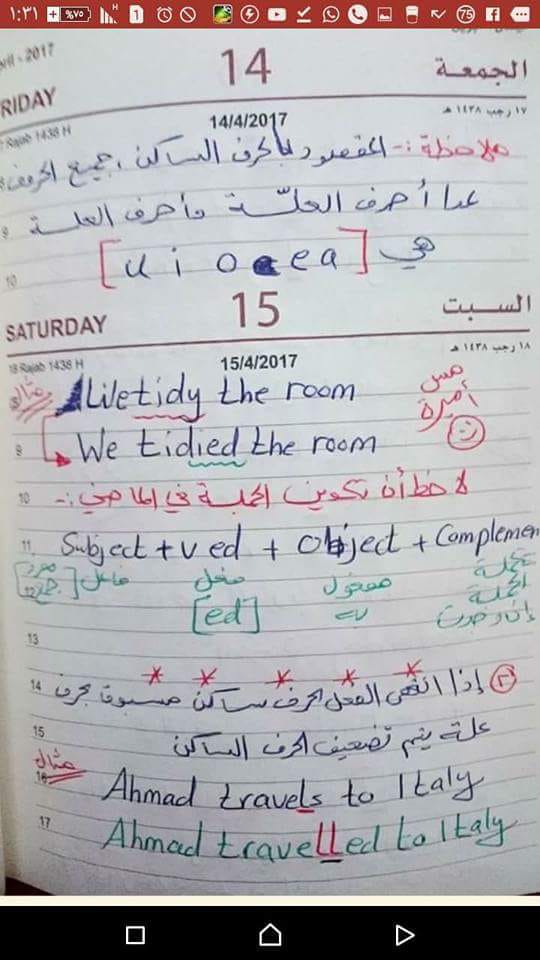 ١:٣١ %٧٥ H 1 75
ril - 2017
14
الجمعة
RIDAY
14/4/2017
١٧ رجب ١٤٣٨ هـ
Rajab 1438 H
ملاحظة :- المقصود بالحرف الساكن ، جميع الحروف
عدا أحرف العلّة وأحرف العلة
9
هي [u i o e a]
10
15
السبت
SATURDAY
15/4/2017
١٨ رجب ١٤٣٨ هـ
18 Rajab 1438 H
مثال We tidy the room
مس أميرة
9 We tidied the room
10 لاحظ أن تكوين الجملة في الماضي :-
11 Subject + v ed + Object + Complemen
12 فاعل فعل مفعول تكملة
[ed] به الجملة
إن وجدت
13
14 ٢ إذا انتهى الفعل بحرف ساكن مسبوق بحرف
15 علة يتم تضعيف الحرف الساكن
مثال
16 Ahmad travels to Italy
17 Ahmad travelled to Italy